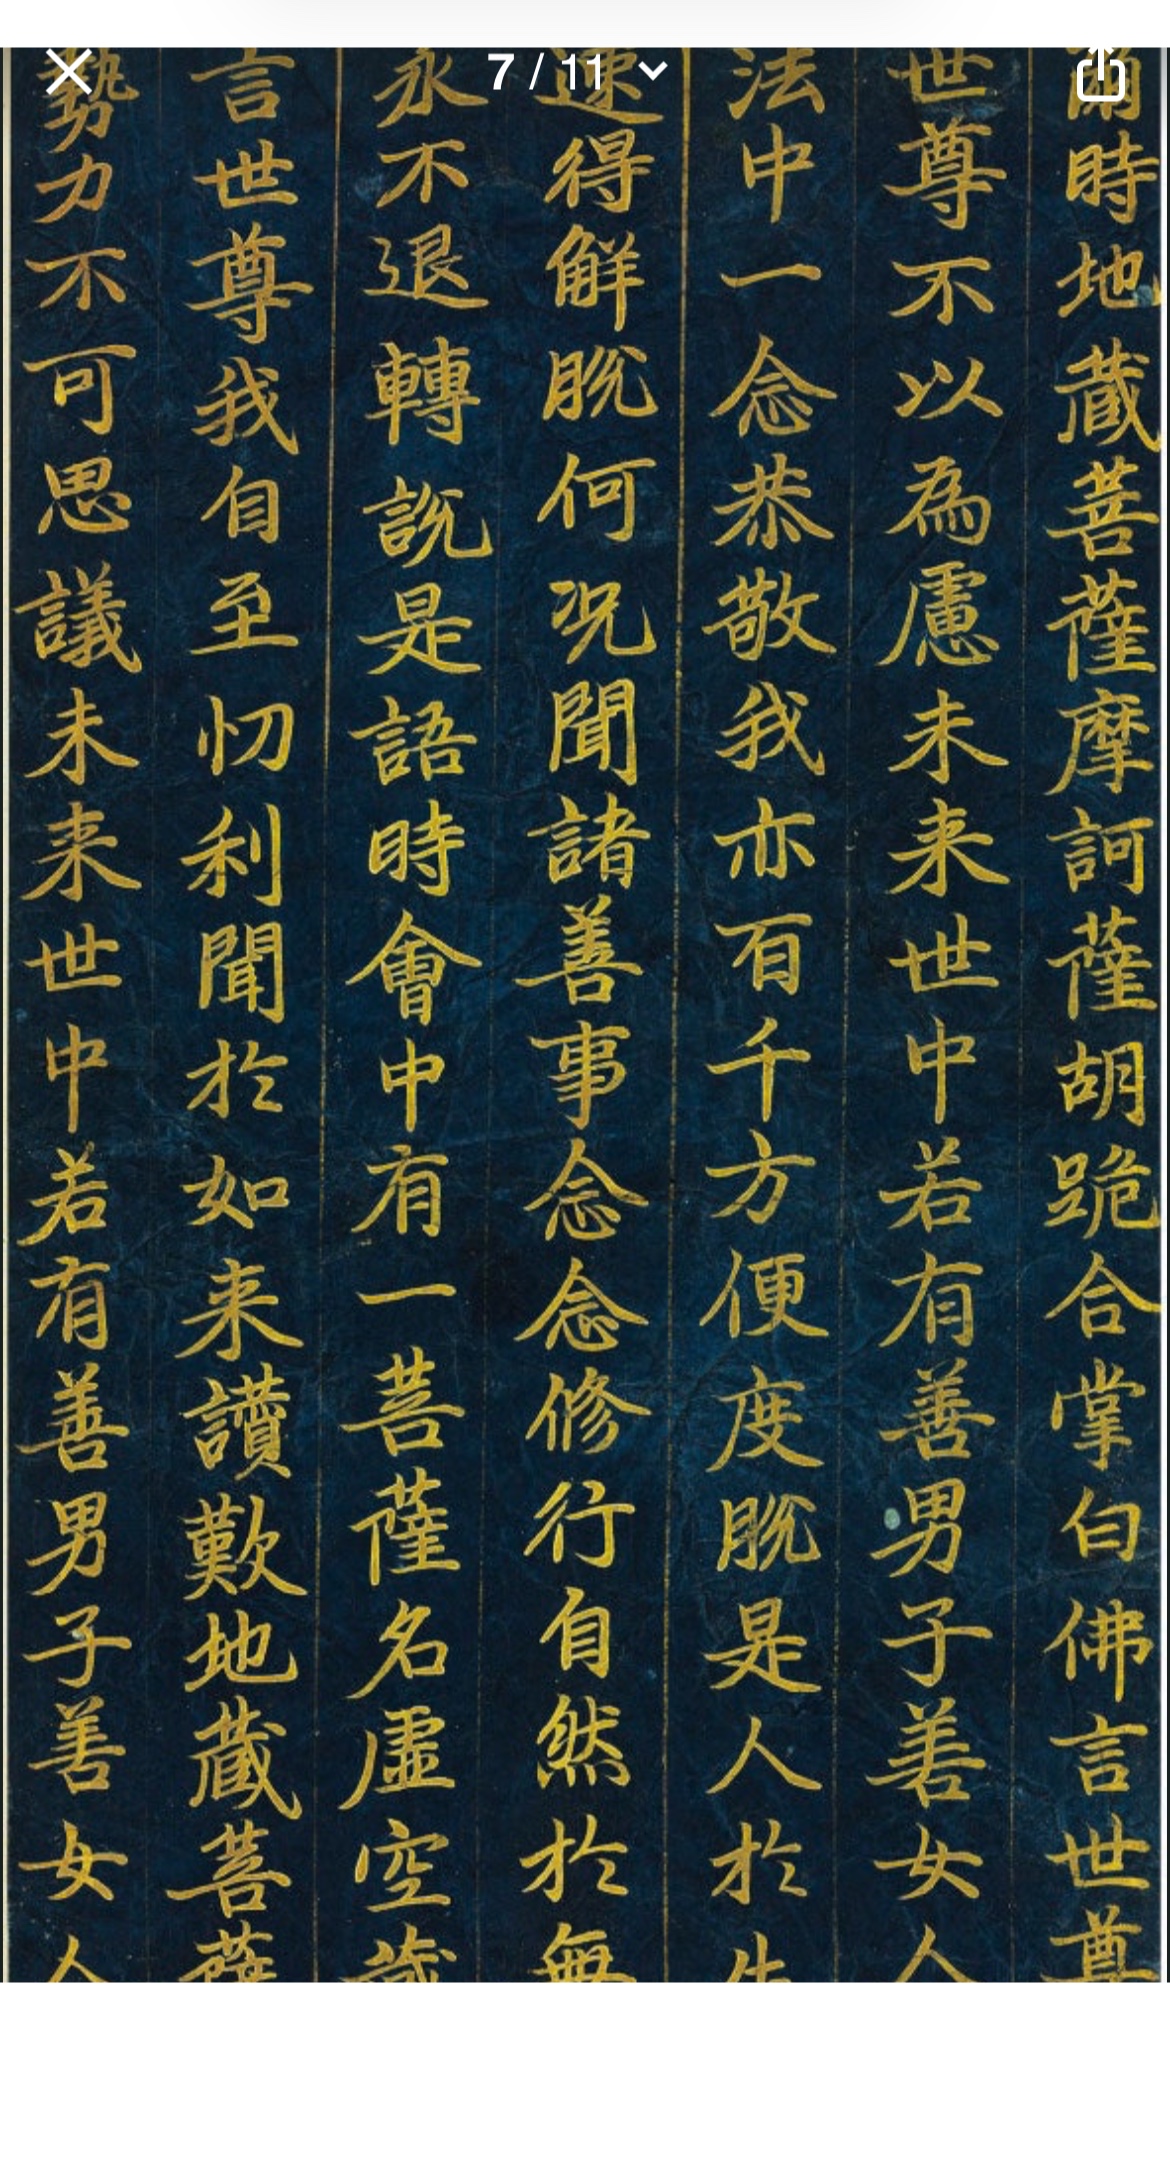 7 / 11
爾時地蔵菩薩摩訶薩胡跪合掌白佛言世尊
世尊不以為慮未来世中若有善男子善女人
法中一念恭敬我亦百千方便度脱是人於生
速得解脱何况聞諸善事念念修行自然於無
永不退轉說是語時會中有一菩薩名虛空蔵
言世尊我自至忉利聞於如来讃歎地蔵菩薩
勢力不可思議未来世中若有善男子善女人